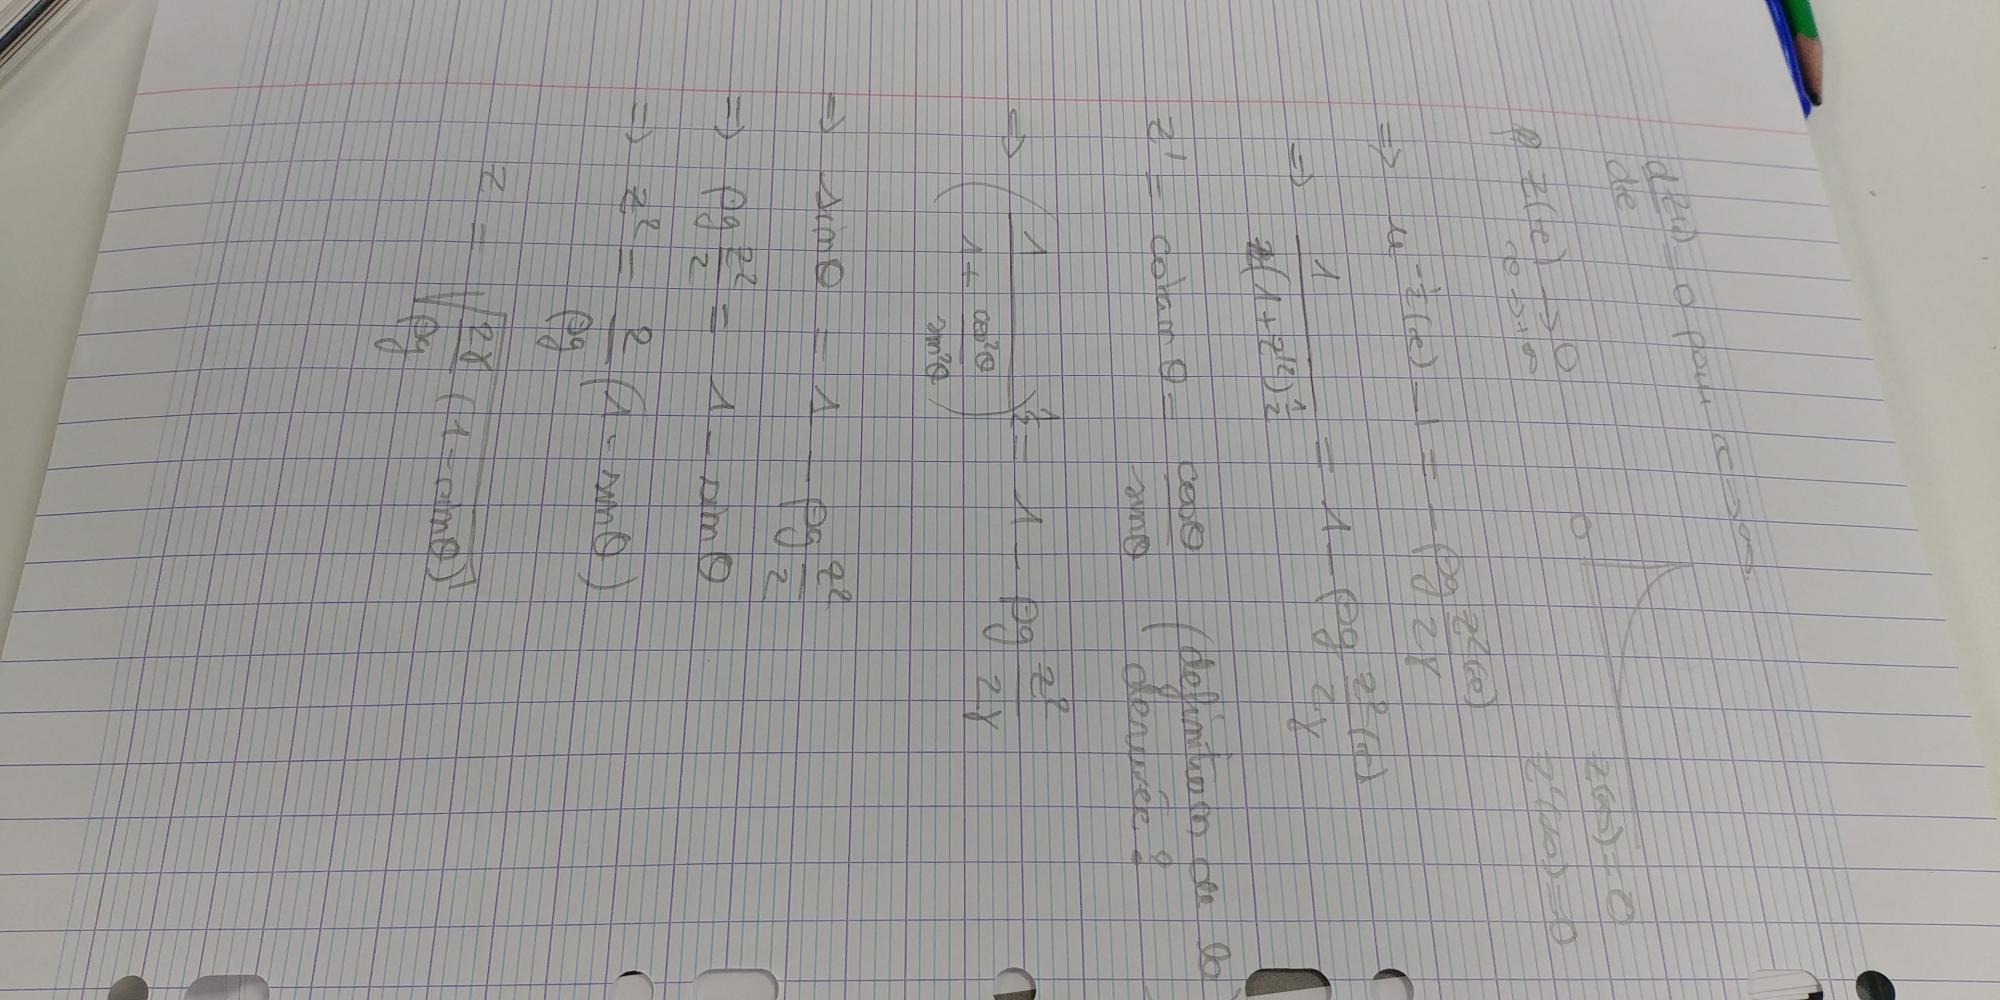 dz(x)/dx = 0 pour x → ∞
z(x) → 0
x → +∞
0
z(∞) = 0
z'(∞) = 0
=> u^(-1/2)(x) - 1 = - ρg z²(x)/2γ
=> 1/(1+z'²)^(1/2) = 1 - ρg z²(x)/2γ
z' = cotan θ = cosθ/sinθ (définition de la dérivée ?)
=> (1/(1 + cos²θ/sin²θ))^(1/2) = 1 - ρg z²/2γ
=> sinθ = 1 - ρg z²/2
=> ρg z²/2 = 1 - sinθ
=> z² = 2/ρg (1 - sinθ)
z = √(2γ/ρg (1 - sinθ))